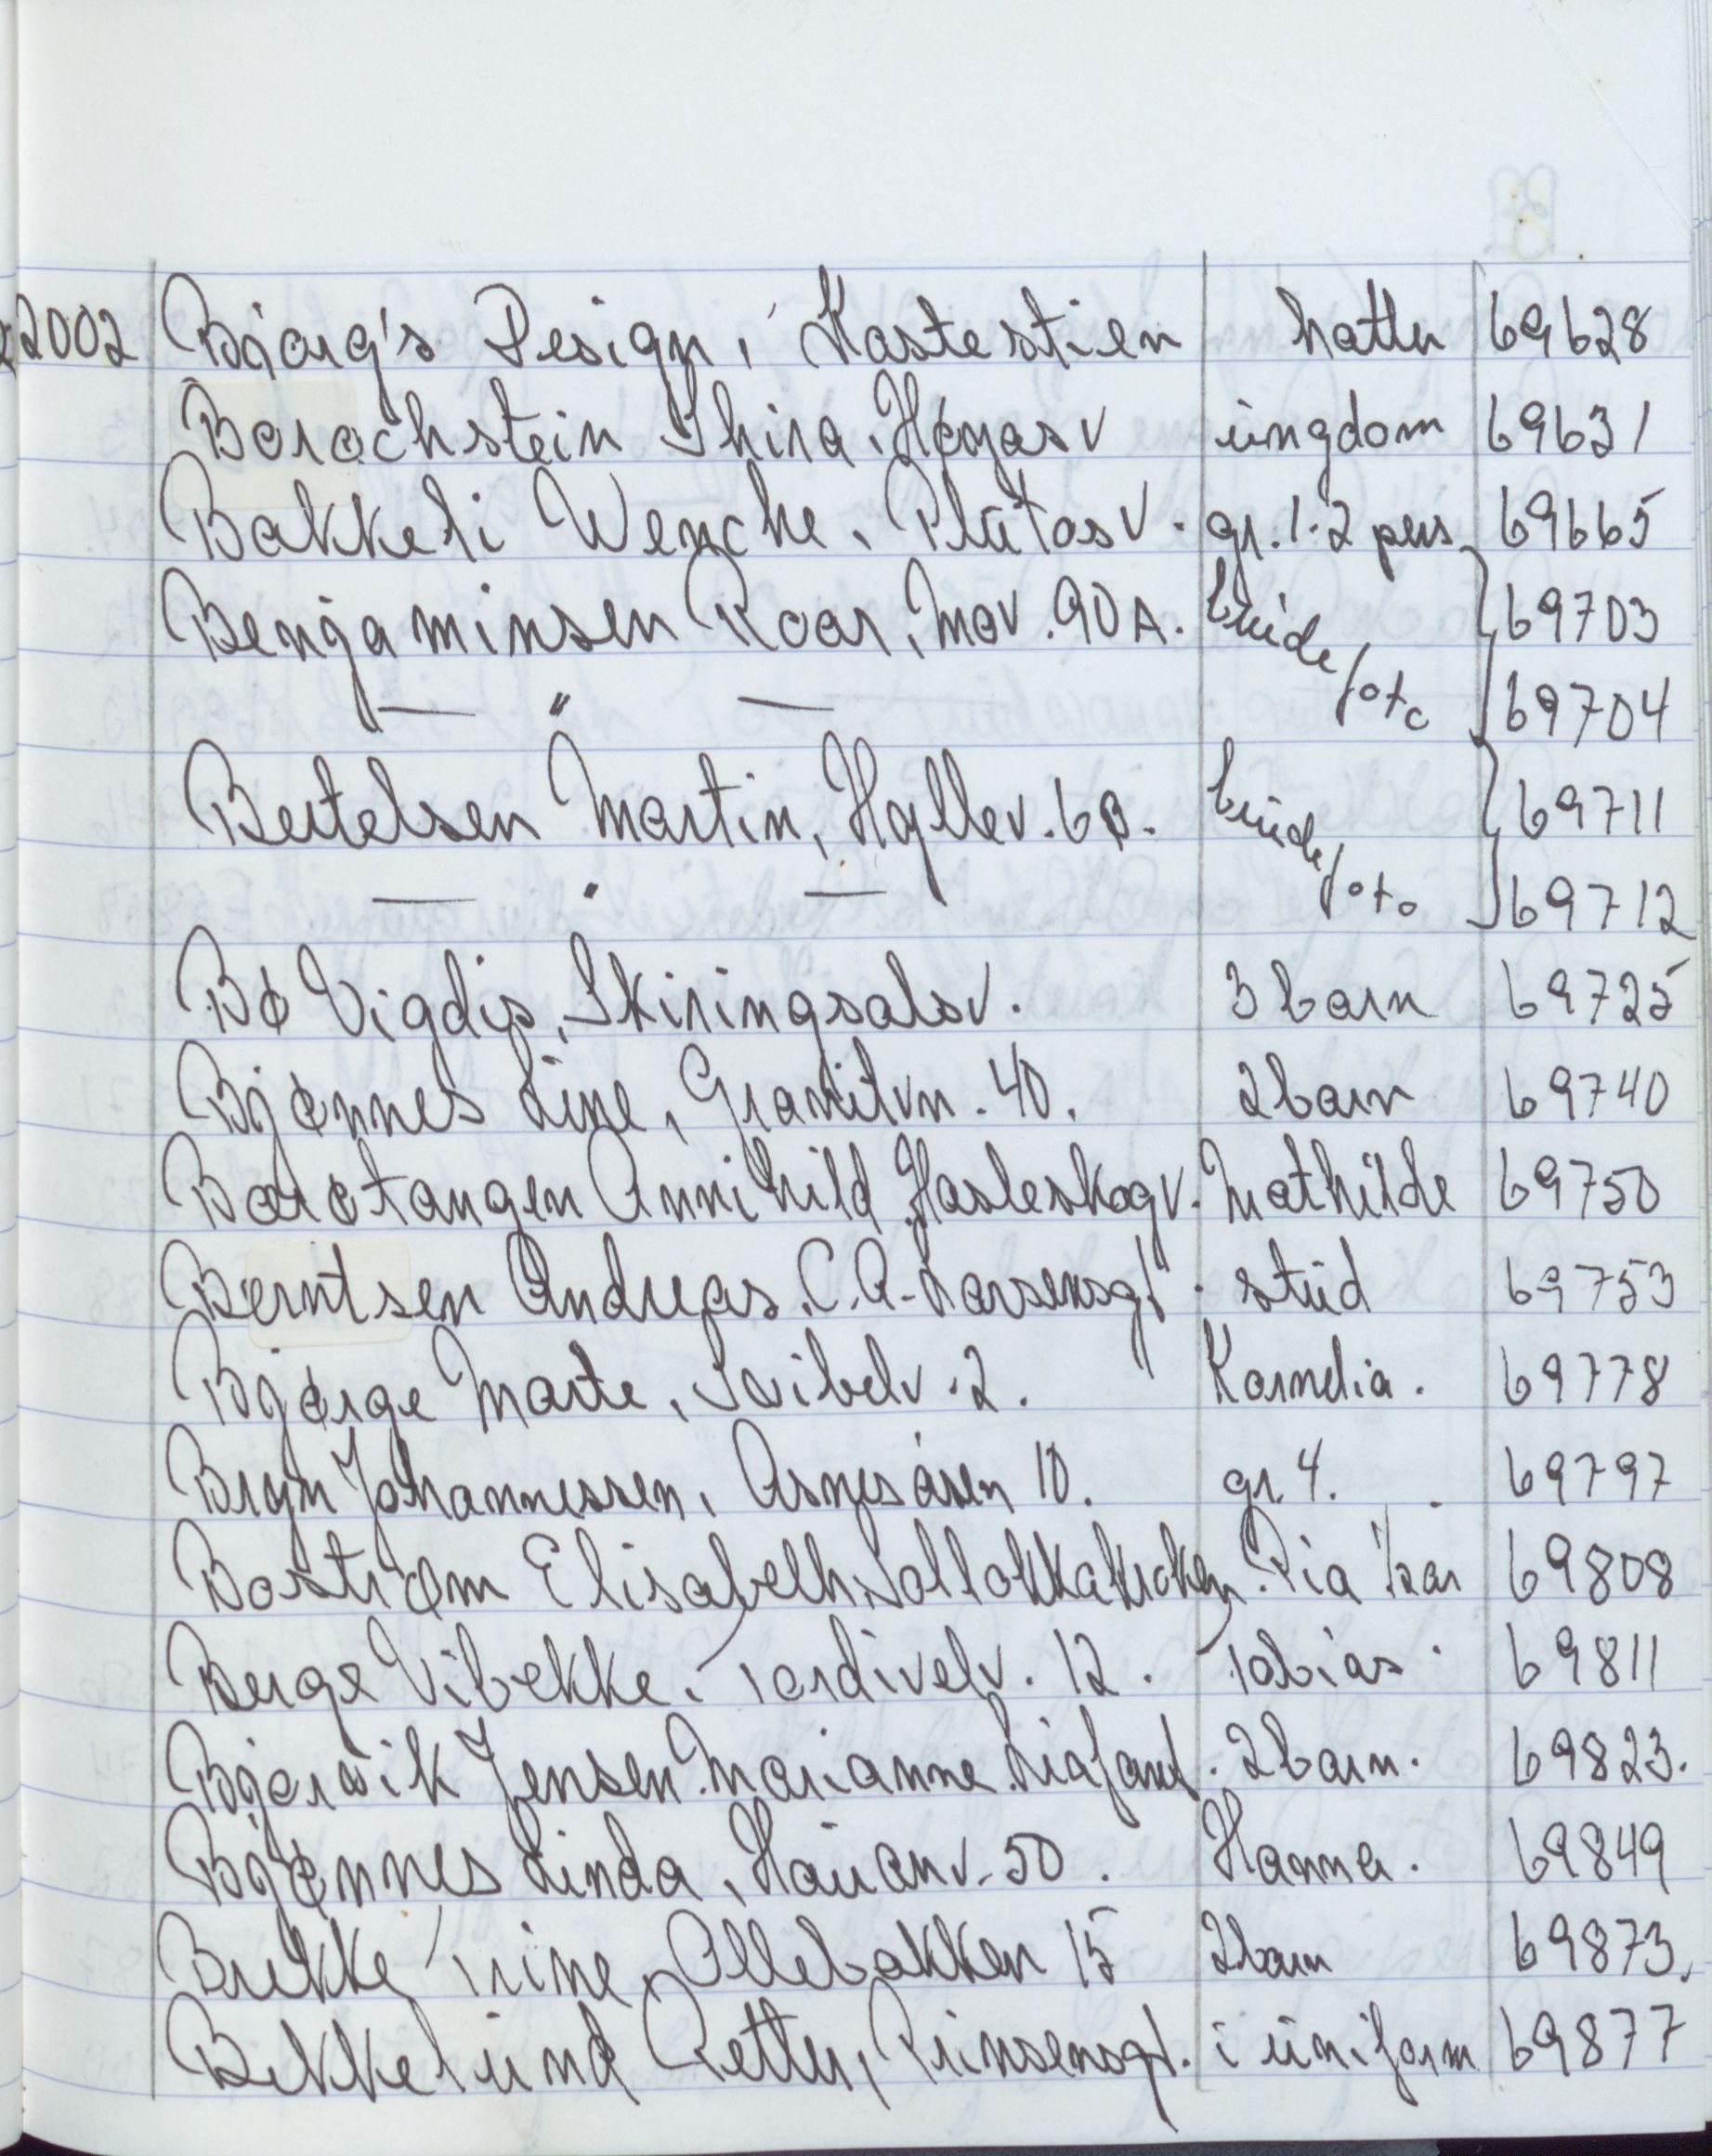 2002 Bjørg's Design, Kastestien hatter 69628
Borochstein Shira, Høyasv ungdom 69631
Bakkeli Wenche, Platåsv. gr. 1-2 pers 69665
Benjaminsen Roar, Mov. 90A. brudefoto 69703
— " — 69704
Bertelsen Martin, Hyllev. 6B. brudefoto 69711
— " — 69712
Bø Vigdis, Skiringsalsv. 3 barn 69725
Bjønnes Line, Granitvn. 40. 2 barn 69740
Barstangen Annihild Hasleskogv. Mathilde 69750
Berntsen Andreas. C.A. Larsensgt. stud 69753
Bjørge Marte, Seibelv. 2. Kornelia. 69778
Bryn Johannessen, Asnesåsen 10. gr. 4. 69797
Bostrøm Elisabeth, Solløkkakroken. Pia 1/2 år 69808
Berge Vibekke. Tordivelv. 12. Tobias. 69811
Bjørvik Jensen Marianne. 2 barn. 69823.
Bjønnes Linda, Hauanv. 50. Hanna. 69849
Brekke Trine, Ollebakken 15 2 barn 69873.
Bekkelund Petter, Prinsensgt. i uniform 69877